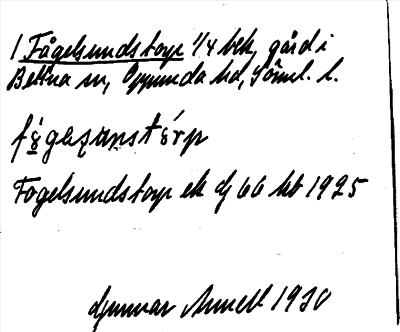 1 Fågelsundstorp 1/4 bek, gård i
Bettna sn, Oppunda hd, Söml. l.
Fogelsundstorp ek dj 66 hbt 1925
Gunvar Annell 1930